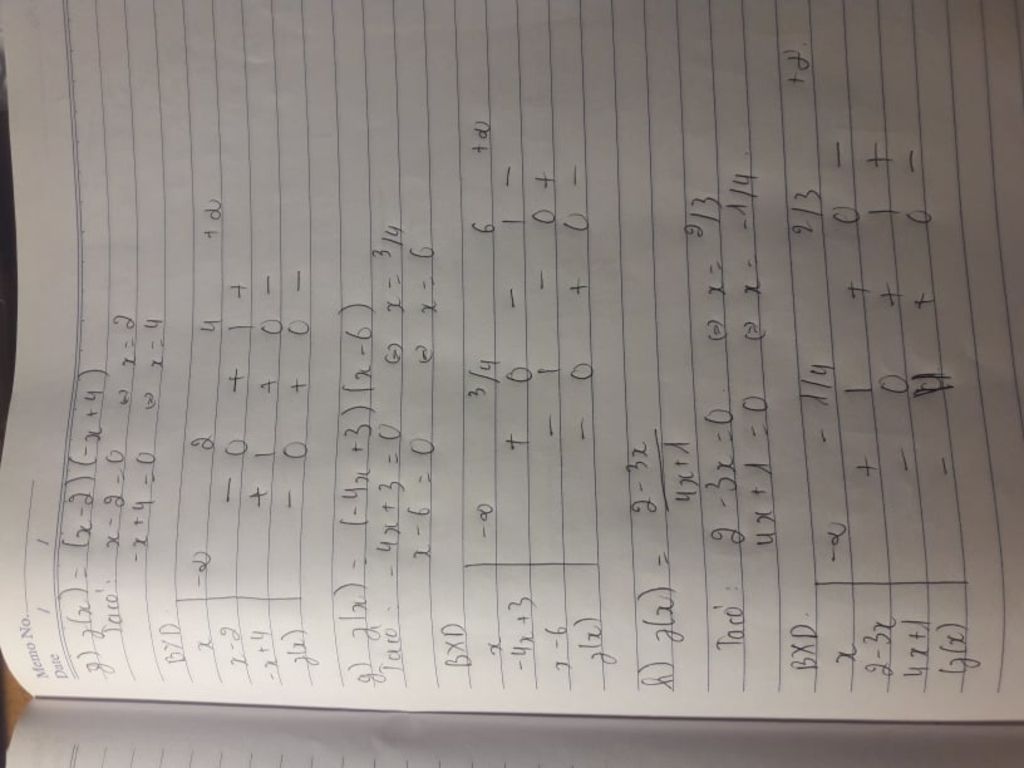 Memo No.
Date / /
g) f(x) = (x-2)(-x+4)
Ta có: x-2=0 ⇔ x=2
-x+4=0 ⇔ x=4
BXD
x -∞ 2 4 +∞
x-2 - 0 + | +
-x+4 + | + 0 -
f(x) - 0 + 0 -
g) f(x) = (-4x+3)(x-6)
Ta có: -4x+3=0 ⇔ x = 3/4
x-6=0 ⇔ x = 6
BXD
x -∞ 3/4 6 +∞
-4x+3 + 0 - | -
x-6 - | - 0 +
f(x) - 0 + 0 -
h) f(x) = 2-3x / 4x+1
Ta có: 2-3x=0 ⇔ x = 2/3
4x+1=0 ⇔ x = -1/4
BXD
x -∞ -1/4 2/3 +∞
2-3x + | + 0 -
4x+1 - 0 + | +
f(x) - || + 0 -